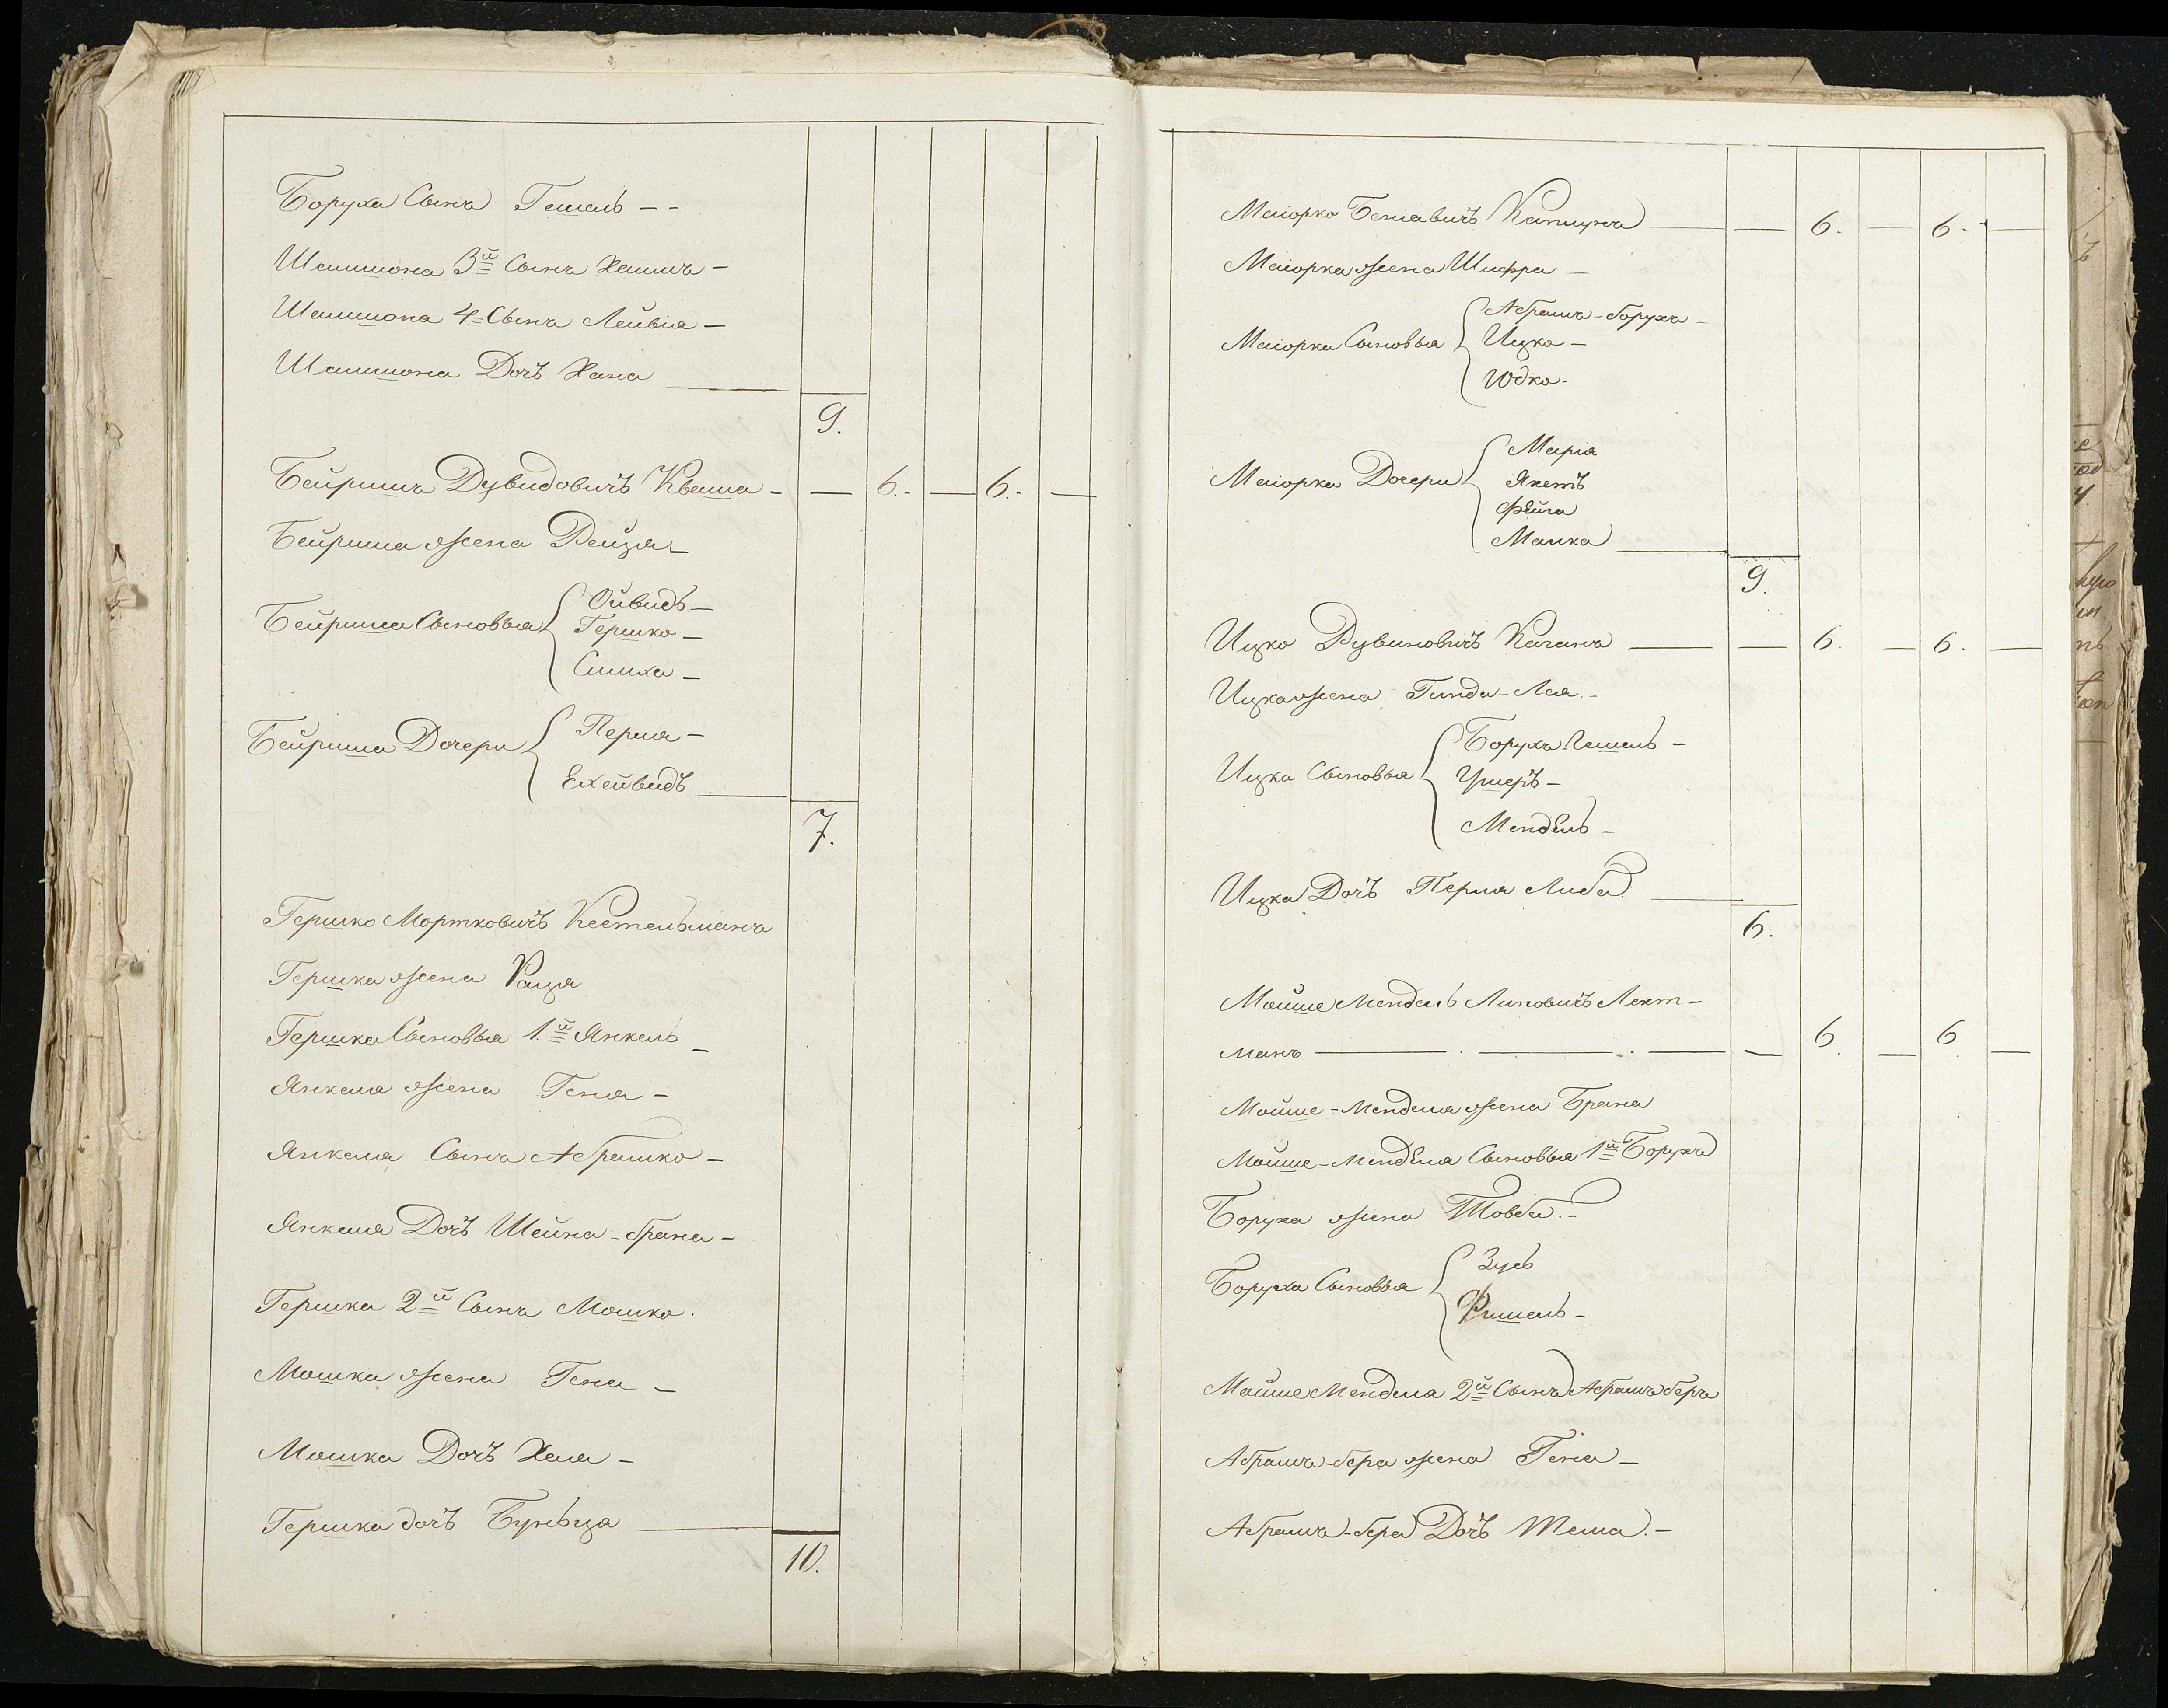 Боруха Сынъ Гешель - -
Шашмона 3й Сынъ Хаимъ -
Шашмона 4й Сынъ Лейвiа -
Шашмона Дочь Хана
9.
Бейришъ Дувидовичъ Кваша - — 6. — 6. —
Бейриша жена Рейзя -
Бейриша Сыновья
Ойвидъ -
Гершко -
Симха -
Бейриша Дочери
Перля -
Ехейвидъ
7.
Гершко Мортковичъ Кестельманъ
Гершка жена Раця
Гершка Сыновья 1.й Янкель -
Янкеля жена Геня -
Янкеля Сынъ Абрамко -
Янкеля Дочь Шейна-брана -
Гершка 2й Сынъ Мошко.
Мошка жена Гена -
Мошка Дочь Хая -
Гершка дочь Буньця
10.
Маiорко Бенiавичъ Капиука — — 6. — 6. —
Маiорка жена Шифра -
Маiорка Сыновья
Абрамъ-борухъ -
Ицко -
Юдко.
Маiорка Дочери
Марiя
Якетъ
Фейга
Малка
9.
Ицко Дувиновичъ Качанъ — — 6. — 6. —
Ицка жена Гинда-Лея. -
Ицка Сыновья
Борухъ Гешель -
Ушеръ -
Мендель -
Ицка Дочь Перля Либа
6.
Мойше Мендель Липовичъ Лехт-
манъ — . — . — — 6. — 6. —
Мойше-Менделя жена Брана
Мойше-Менделя Сыновья 1й Борухъ
Боруха жена Товба. -
Боруха Сыновья
Зусь
Фишель -
Мойше Менделя 2й Сынъ Абрамъ беръ
Абрамъ-бера жена Геня -
Абрамъ-бера Дочь Тема. -